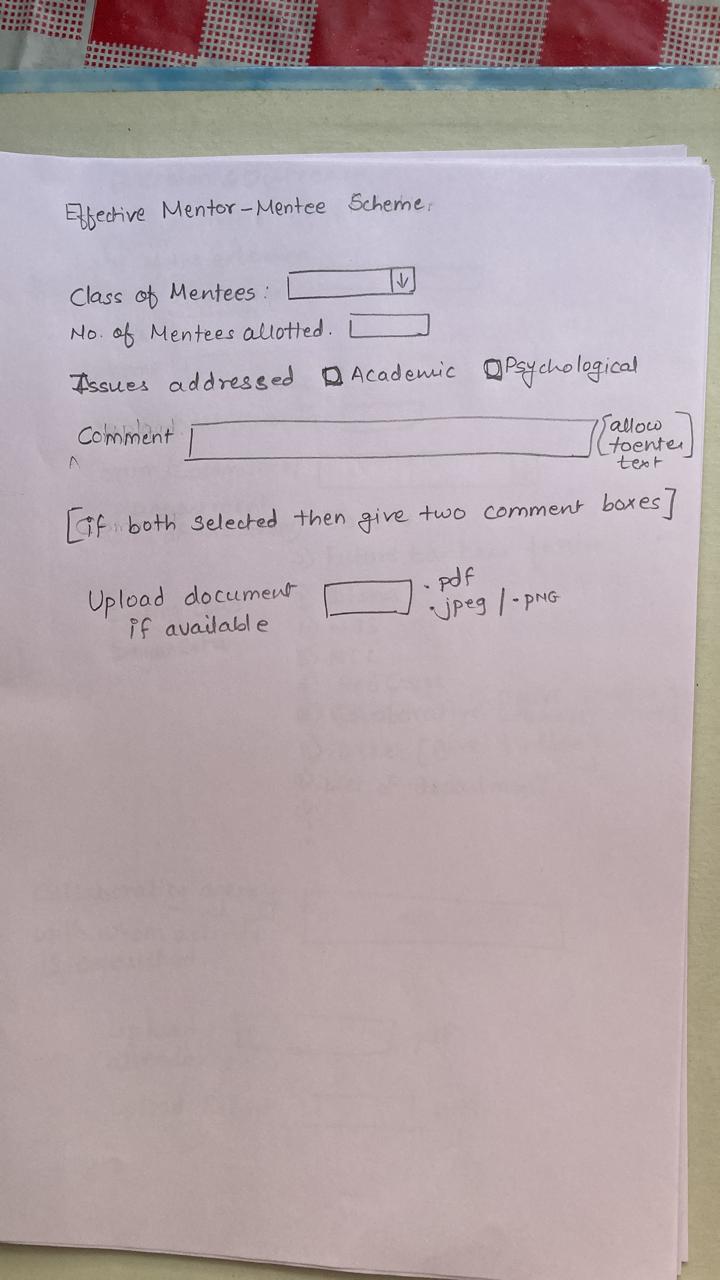 Effective Mentor-Mentee Scheme.
Class of Mentees :
No. of Mentees allotted.
Issues addressed Academic Psychological
Comment [allow to enter text]
[if both selected then give two comment boxes]
Upload document if available .pdf
.jpeg / .PNG